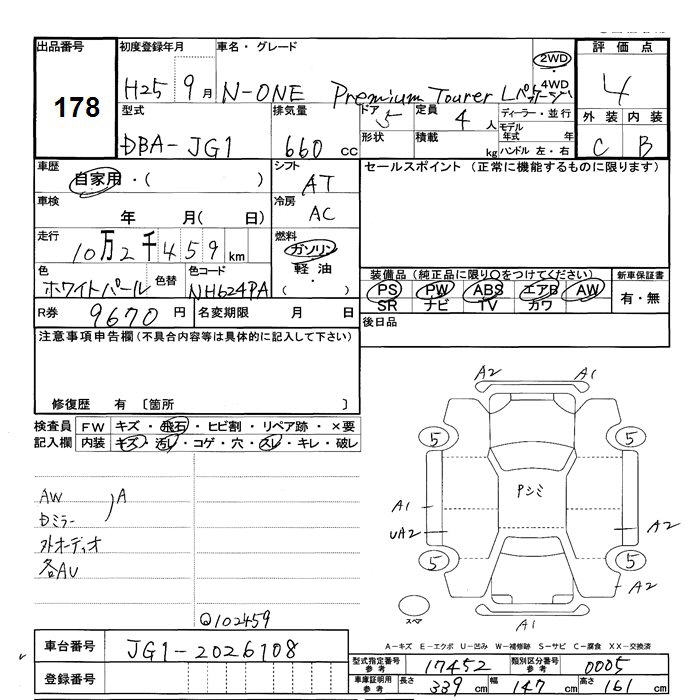 出品番号
178
初度登録年月
H25 9月
車名・グレード
N-ONE Premium Tourer Lパッケージ
2WD
4WD
評価点
4
型式
DBA-JG1
排気量
660 cc
ドア
5
定員
4 人
ディーラー・並行
モデル年式 年
形状
積載 kg
ハンドル 左・右
外装 内装
C B
車歴
自家用・( )
シフト
AT
セールスポイント (正常に機能するものに限ります)
車検
年 月( 日)
冷房
AC
走行
10万2千459 km
燃料
ガソリン
軽油
( ・ )
色
ホワイトパール
色替
色コード
NH624PA
装備品(純正品に限り○をつけてください)
PS PW ABS エアB AW
SR ナビ TV カワ
新車保証書
有・無
R券 9670 円
名変期限 月 日
後日品
注意事項申告欄(不具合内容等は具体的に記入して下さい)
修復歴 有 〔箇所 〕
検査員記入欄
FW キズ・飛石・ヒビ割・リペア跡・×要
内装 キズ・汚レ・コゲ・穴・スレ・キレ・破レ
AW
Dミラー
A
外オーディオ
各AU
Q102459
A2 A1
5 5
Pシミ
A1
UA2
A2
5 5
A2
スペア
A1
A-キズ E-エクボ U-凹み W-補修跡 S-サビ C-腐食 XX-交換済
車台番号 JG1-2026108
登録番号
型式指定番号参考 17452
類別区分番号参考 0005
車庫証明用参考 長さ 339 cm 幅 147 cm 高さ 161 cm